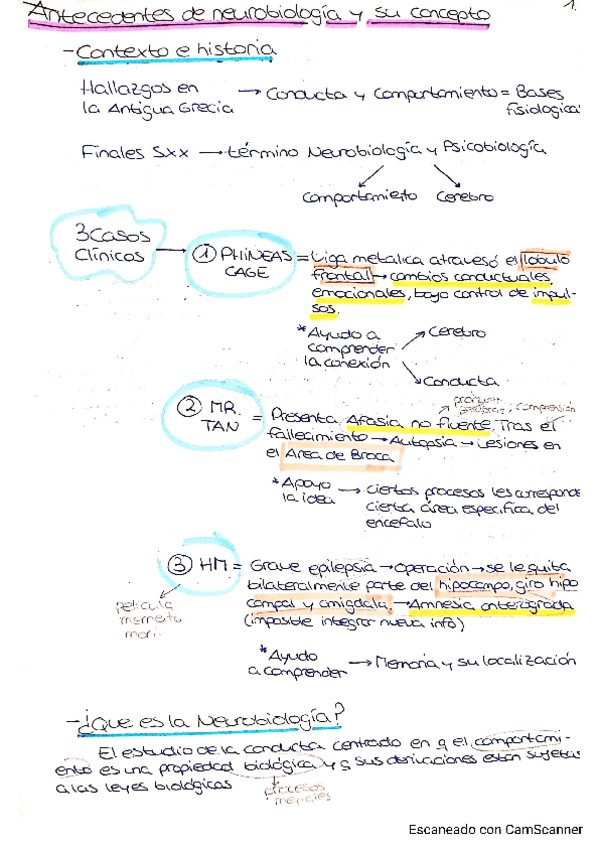 Antecedentes de neurobiología y su concepto 1.
- Contexto e historia
Hallazgos en
la Antigua Grecia → Conducta y Comportamiento = Bases
fisiologica
Finales Sxx → término Neurobiología y Psicobiología
comportamiento cerebro
3 Casos
Clínicos → ① PHINEAS = Viga metalica atravesó el lóbulo
CAGE frontal → cambios conductuales,
emocionales, bajo control de impul-
sos.
*Ayudo a
comprender
la conexión
→ Cerebro
→ Conducta
② MR.
TAN = Presenta Afasia no fluente. Tras el
comprensión
fallecimiento → Autopsia → Lesiones en
el Area de Broca
*Apoyo
la idea → ciertos procesos les corresponde
cierta área especifica del
encefalo
③ HM = Grave epilepsia → operación → se le quita
bilateralmente parte del hipocampo, giro hipo
campal y amigdala. → Amnesia anterograda
(imposible integrar nueva info)
pelicula
memento
mori
*Ayudo
a comprender → Memoria y su localización
- ¿Que es la Neurobiología?
El estudio de la conducta centrado en q el comportami-
ento es una propiedad biológica y q sus derivaciones estan sujetas
a las leyes biológicas
procesos
mentales
Escaneado con CamScanner